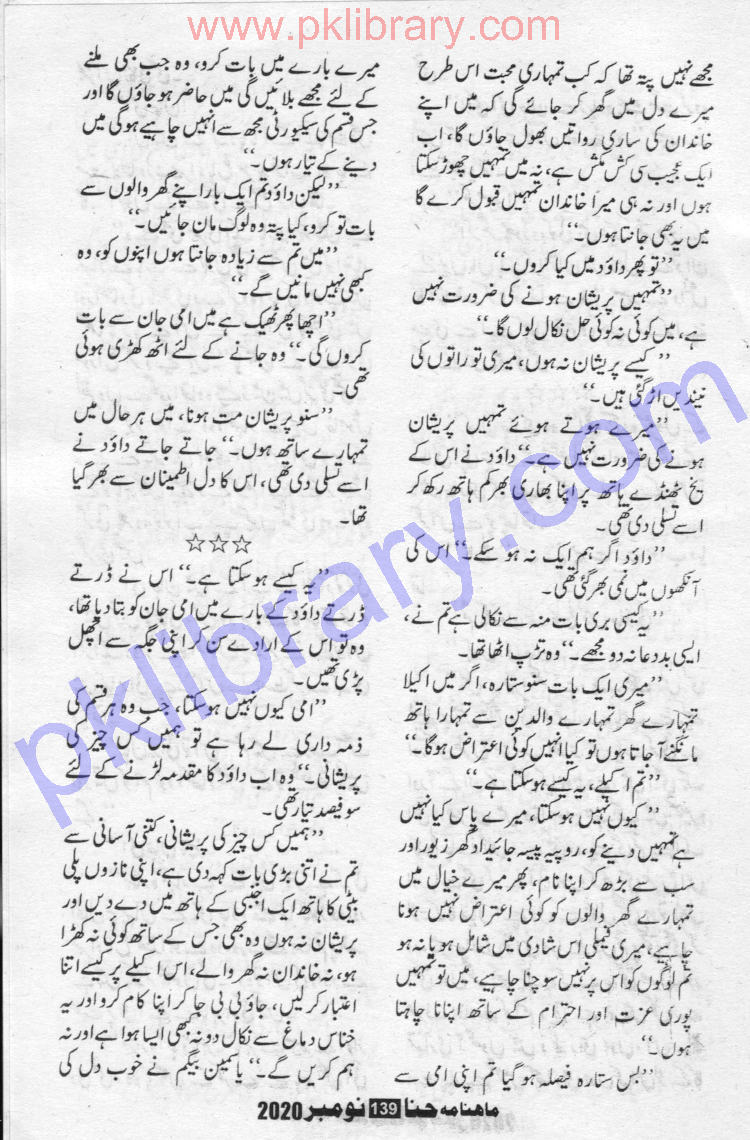 www.pklibrary.com
مجھے نہیں پتہ تھا کہ کب تمہاری محبت اس طرح
میرے دل میں گھر کر جائے گی کہ میں اپنے
خاندان کی ساری روایتیں بھول جاؤں گا، اب
ایک عجیب سی کش مکش ہے، نہ میں تمہیں چھوڑ سکتا
ہوں اور نہ ہی میرا خاندان تمہیں قبول کرے گا
میں یہ بھی جانتا ہوں۔‘‘
’’تو پھر داؤد میں کیا کروں۔‘‘
’’تمہیں پریشان ہونے کی ضرورت نہیں
ہے، میں کوئی نہ کوئی حل نکال لوں گا۔‘‘
’’کیسے پریشان نہ ہوں، میری تو راتوں کی
نیندیں اڑ گئی ہیں۔‘‘
’’میرے ہوتے ہوئے تمہیں پریشان
ہونے کی ضرورت نہیں ہے۔‘‘ داؤد نے اس کے
یخ ٹھنڈے ہاتھ پر اپنا بھاری بھرکم ہاتھ رکھ کر
اسے تسلی دی تھی۔
’’داؤد اگر ہم ایک نہ ہو سکے۔‘‘ اس کی
آنکھوں میں نمی بھر گئی تھی۔
’’یہ کیسی بری بات منہ سے نکالی ہے تم نے،
ایسی بددعا نہ دو مجھے۔‘‘ وہ تڑپ اٹھا تھا۔
’’میری ایک بات سنو ستارہ، اگر میں اکیلا
تمہارے گھر تمہارے والدین سے تمہارا ہاتھ
مانگنے آ جاتا ہوں تو کیا انہیں کوئی اعتراض ہوگا۔‘‘
’’تم اکیلے، یہ کیسے ہو سکتا ہے۔‘‘
’’کیوں نہیں ہو سکتا، میرے پاس کیا نہیں
ہے تمہیں دینے کو، روپیہ پیسہ جائیداد گھر زیور اور
سب سے بڑھ کر اپنا نام، پھر میرے خیال میں
تمہارے گھر والوں کو کوئی اعتراض نہیں ہونا
چاہیے، میری فیملی اس شادی میں شامل ہو یا نہ ہو
تم لوگوں کو اس پر نہیں سوچنا چاہیے، میں تو تمہیں
پوری عزت اور احترام کے ساتھ اپنانا چاہتا
ہوں۔‘‘
’’بس ستارہ فیصلہ ہو گیا تم اپنی امی سے
میرے بارے میں بات کرو، وہ جب بھی ملنے
کے لئے مجھے بلائیں گی میں حاضر ہو جاؤں گا اور
جس قسم کی سیکیورٹی مجھ سے انہیں چاہیے ہوگی میں
دینے کے تیار ہوں۔‘‘
’’لیکن داؤد تم ایک بار اپنے گھر والوں سے
بات تو کرو، کیا پتہ وہ لوگ مان جائیں۔‘‘
’’میں تم سے زیادہ جانتا ہوں اپنوں کو، وہ
کبھی نہیں مانیں گے۔‘‘
’’اچھا پھر ٹھیک ہے میں امی جان سے بات
کروں گی۔‘‘ وہ جانے کے لئے اٹھ کھڑی ہوئی
تھی۔
’’سنو پریشان مت ہونا، میں ہر حال میں
تمہارے ساتھ ہوں۔‘‘ جاتے جاتے داؤد نے
اسے تسلی دی تھی، اس کا دل اطمینان سے بھر گیا
تھا۔
☆☆☆
’’یہ کیسے ہو سکتا ہے۔‘‘ اس نے ڈرتے
ڈرتے داؤد کے بارے میں امی جان کو بتا دیا تھا،
وہ تو اس کے ارادے سن کر اپنی جگہ سے اچھل
پڑی تھیں۔
’’امی کیوں نہیں ہو سکتا، جب وہ ہر قسم کی
ذمہ داری لے رہا ہے تو ہمیں کس چیز کی
پریشانی۔‘‘ وہ اب داؤد کا مقدمہ لڑنے کے لئے
سو فیصد تیار تھی۔
’’ہمیں کس چیز کی پریشانی، کتنی آسانی سے
تم نے اتنی بڑی بات کہہ دی ہے، اپنی نازوں پلی
بیٹی کا ہاتھ ایک اجنبی کے ہاتھ میں دے دیں اور
پریشان نہ ہوں وہ بھی جس کے ساتھ کوئی نہ کھڑا
ہو، نہ خاندان نہ گھر والے، اس اکیلے پر کیسے اتنا
اعتبار کر لیں، جاؤ بی بی جا کر اپنا کام کرو اور یہ
خناس دماغ سے نکال دو نہ کبھی ایسا ہوا ہے اور نہ
ہم کریں گے۔‘‘ یاسمین بیگم نے خوب دل کی
ماہنامہ حنا 139 نومبر 2020
pklibrary.com